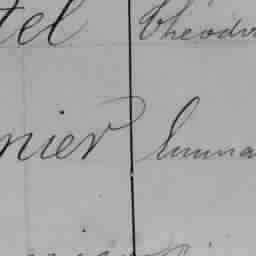 tel Theodor
nier Emma